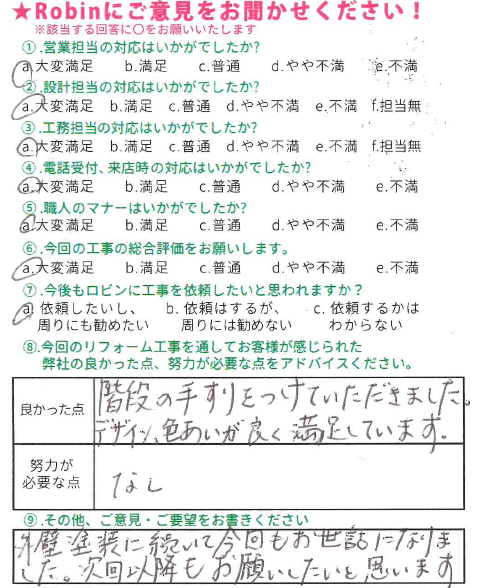 ★Robinにご意見をお聞かせください！
※該当する回答に〇をお願いいたします
①.営業担当の対応はいかがでしたか?
a.大変満足 b.満足 c.普通 d.やや不満 e.不満
②.設計担当の対応はいかがでしたか?
a.大変満足 b.満足 c.普通 d.やや不満 e.不満 f.担当無
③.工務担当の対応はいかがでしたか?
a.大変満足 b.満足 c.普通 d.やや不満 e.不満 f.担当無
④.電話受付、来店時の対応はいかがでしたか?
a.大変満足 b.満足 c.普通 d.やや不満 e.不満
⑤.職人のマナーはいかがでしたか?
a.大変満足 b.満足 c.普通 d.やや不満 e.不満
⑥.今回の工事の総合評価をお願いします。
a.大変満足 b.満足 c.普通 d.やや不満 e.不満
⑦.今後もロビンに工事を依頼したいと思われますか？
a. 依頼したいし、 b. 依頼はするが、 c. 依頼するかは
周りにも勧めたい 周りには勧めない わからない
⑧.今回のリフォーム工事を通してお客様が感じられた
弊社の良かった点、努力が必要な点をアドバイスください。
良かった点
階段の手すりをつけていただきました。
デザイン、色あいが良く満足しています。
努力が
必要な点
なし
⑨.その他、ご意見・ご要望をお書きください
外壁塗装に続いて今回もお世話になりま
した。次回以降もお願いしたいと思います